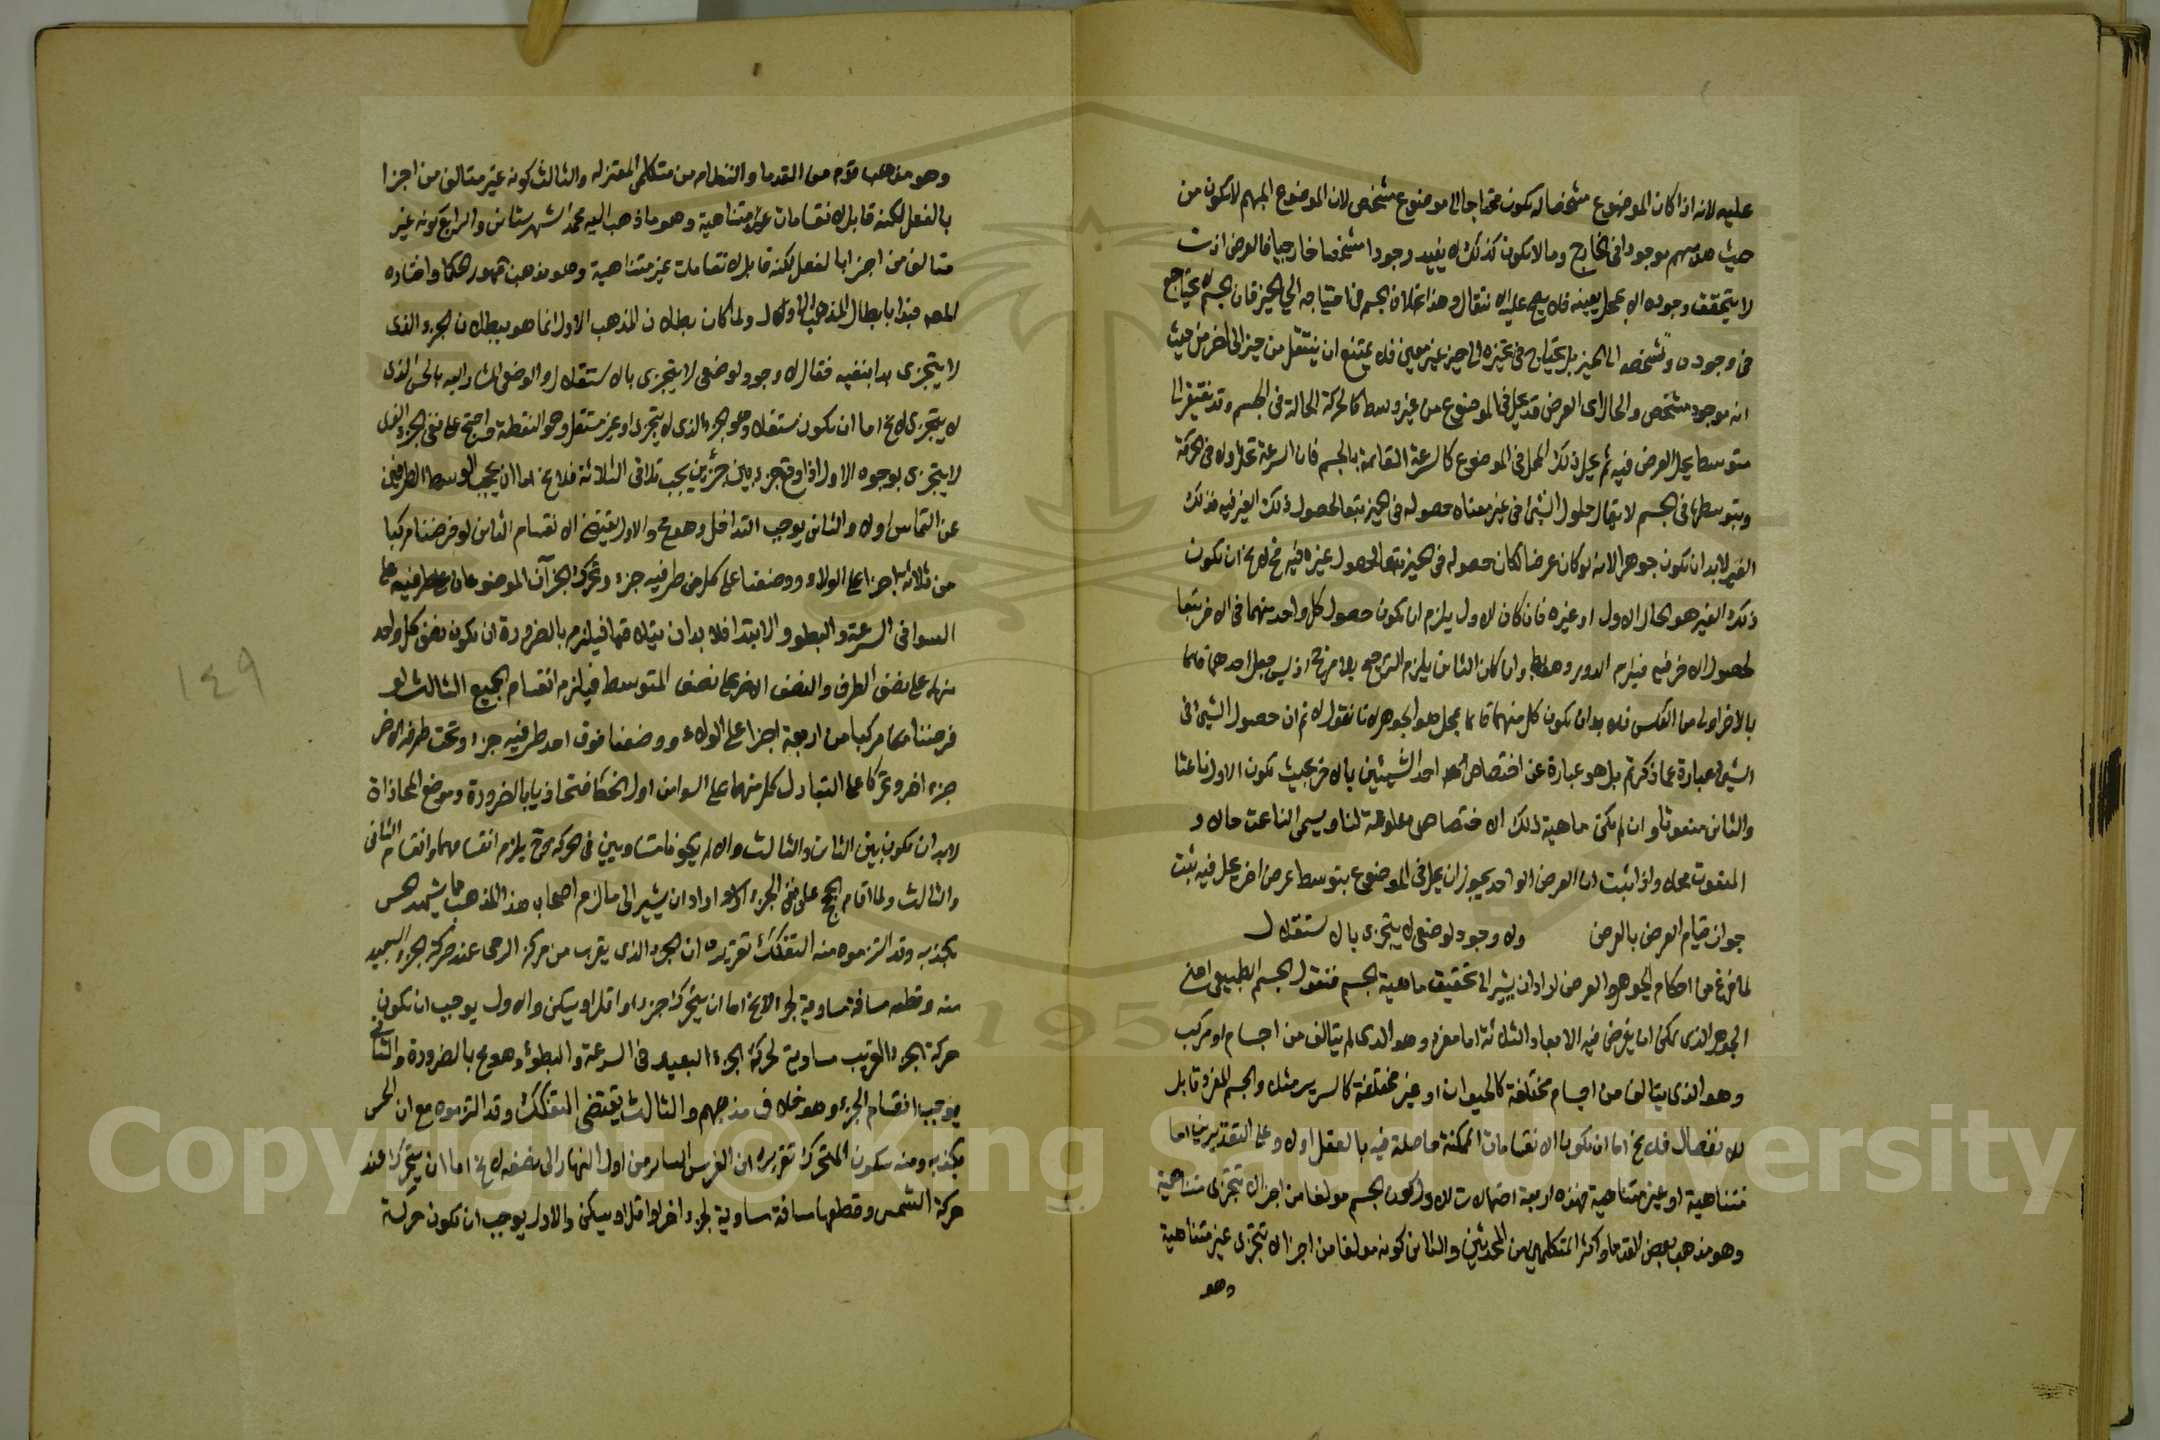 عليه لانه اذا كان الموضوع مشخصا له يكون محتاجا الى موضوع مشخص لان الموضوع المبهم لا يكون من
حيث هو مبهم موجودا فى الخارج وما لا يكون كذلك لا يفيد وجودا مشخصا خارجيا فالعرض اذن
لا يتحقق وجوده الا بمحل بعينه فلا يصح عليه الانتقال وهذا بخلاف الجسم فى احتياجه الى الحيز فان الجسم لا يحتاج
فى وجوده وتشخصه الى الحيز بل يحتاج فى تحيزه الى حيز غير معين فلا يمتنع ان ينتقل من حيز الى اخر من حيث
انه موجود مشخص والحال اى العرض قد يحل فى الموضوع من غير وسط كالحركة الحالة فى الجسم وقد يفتقر الى
متوسط يحل العرض فيه ثم يحل ذلك المحل فى الموضوع كالسرعة القائمة بالجسم فان السرعة تحل اولا فى الحركة
وبتوسطها فى الجسم لا يقال حلول الشئ فى غيره معناه حصوله فى الحيز تبعا لحصول ذلك الغير فيه فذلك
الغير لا بد ان يكون جوهرا لانه لو كان عرضا لكان حصوله فى الحيز تبعا لحصول غيره فيه فح لا يخ ان يكون
ذلك الغير هو الحال الاول او غيره فان كان الاول يلزم ان يكون حصول كل واحد منهما فى الاخر تبعا
لحصول الاخر فيه فيلزم الدور وهو بط وان كان الثانى يلزم الترجيح بلا مرجح اذ ليس جعل احدهما قائما
بالاخر اولى من العكس فلا بد ان يكون كل منهما قائما بمحل هو الجوهر لانا نقول لا نم ان حصول الشئ فى
الشئ عبارة عما ذكرتم بل هو عبارة عن اختصاص احد الشيئين بالاخر بحيث يكون الاول ناعتا
والثانى منعوتا وان لم يكن ماهية ذلك الاختصاص معلومة لنا ويسمى الناعت حالا و
المنعوت محلا واذا ثبت ان العرض الواحد يجوز ان يحل فى الموضوع بتوسط عرض اخر يحل فيه ثبت
جواز قيام العرض بالعرض ولا وجود لوضعى لا يتجزى بالاستقلال
لما فرغ من احكام الجوهر والعرض اراد ان يشير الى تحقيق ماهية الجسم فنقول الجسم الطبيعى اعنى
الجوهر الذى يمكن ان يفرض فيه الابعاد الثلاثة اما مفرد وهو الذى لم يتالف من اجسام او مركب
وهو الذى يتالف من اجسام مختلفة كالحيوان او غير مختلفة كالسرير مثلا والجسم المفرد قابل
للانفصال فلا يخ اما ان يكون الانقسامات الممكنة حاصلة فيه بالفعل او لا وعلى التقديرين اما
متناهية او غير متناهية فهذه اربعة احتمالات الاول كون الجسم مولفا من اجزا لا تتجزى متناهية
وهو مذهب بعض القدما واكثر المتكلمين من المحدثين والثانى كونه مولفا من اجزا لا تتجزى غير متناهية
وهو
وهو مذهب قوم من القدما والنظام من متكلمى المعتزله والثالث كونه غير متالف من اجزا
بالفعل لكنه قابل لانقسامات متناهية وهو ما ذهب اليه محمد الشهرستانى والرابع كونه غير
متالف من اجزا بالفعل لكنه قابل لانقسامات غير متناهية وهو مذهب جمهور الحكما واختاره
المص فبدا بابطال المذهب الاول ولما كان بطلان المذهب الاول انما هو ببطلان الجزء الذى
لا يتجزى بدا بنفيه فقال لا وجود لوضعى لا يتجزى بالاستقلال والوضعى المشار اليه بالحس الذى
لا يتجزى لا يخ اما ان يكون مستقلا وهو الجزء الذى لا يتجزى او غير مستقل وهو النقطة واحتج على نفى الجزء الذى
لا يتجزى بوجوه الاول اذا وقع جزء بين جزئين يجب تلاقى الثلاثة فلا يخ اما ان يحجب الوسط الطرفين
عن التماس او لا والثانى يوجب التداخل وهو مح والاول يقتضى الانقسام الثانى لو فرضنا مركبا
من ثلاثة اجزا على الولاء ووضعنا على كل من طرفيه جزء وتحرك الجزآن الموضوعان على طرفيه على
السوا فى السرعة والبطو والابتدا فلا بد ان يتلاقيا فيلزم بالضرورة ان يكون نصف كل واحد
منهما على نصف الطرف والنصف الاخر على نصف المتوسط فيلزم انقسام الجميع الثالث لو
فرضنا مركبا من اربعة اجزا على الولاء ووضعنا فوق احد طرفيه جزء وتحت طرفه الاخر
جزء اخر وتحركا على التبادل كل منهما على السوا من اول الخط فتحاذيا بالضرورة وموضع المحاذاة
لا بد ان يكون بين الثانى والثالث والا لم يكونا متساويين فى الحركة فح يلزم انقسامهما وانقسام الثانى
والثالث ولما اقام الحجج على نفى الجزء اراد ان يشير الى ما لزم اصحاب هذا المذهب مما يشهد الحس
بكذبه وقد التزموه منه التفكك تقريره ان الجزء الذى يقرب من مركز الرحى عند حركة الجزء البعيد
منه وقطعه مسافة مساوية لجزء لا يخ اما ان يتحرك جزء او اقل او يسكن والاول يوجب ان يكون
حركة الجزء القريب مساوية لحركة الجزء البعيد فى السرعة والبطوء وهو مح بالضرورة والثانى
يوجب انقسام الجزء وهو خلاف مذهبهم والثالث يقتضى التفكك وقد التزموه مع ان الحس
يكذبه ومنه سكون المتحرك تقريره ان الفرس السائر من اول النهار الى نصفه لا يخ اما ان يتحرك عند
حركة الشمس وقطعها مسافة مساوية لجزء جزء او اقل او يسكن والاول يوجب ان يكون حركة
١٤٩
Copyright © King Saud University
1957